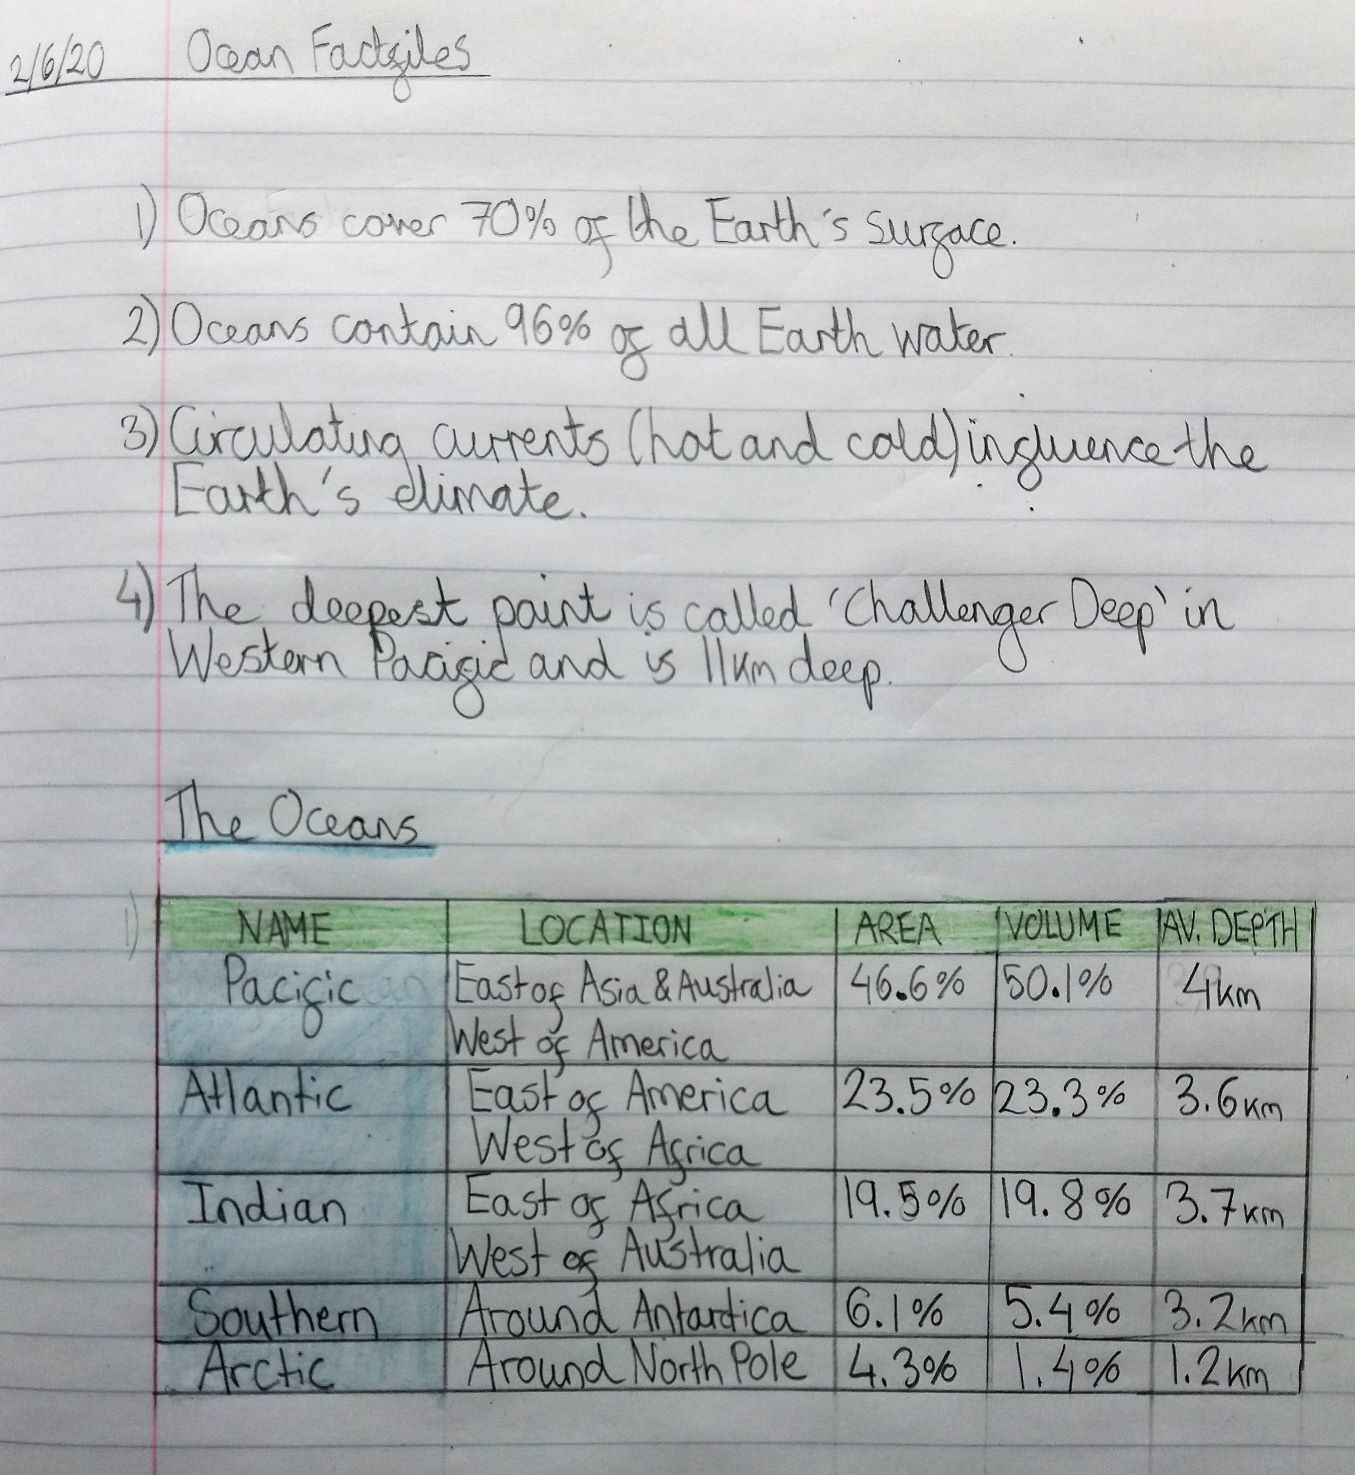 2/6/20 Ocean Factfiles
1) Oceans cover 70% of the Earth's surface.
2) Oceans contain 96% of all Earth water.
3) Circulating currents (hot and cold) influence the
Earth's climate.
4) The deepest point is called 'Challenger Deep' in
Western Pacific and is 11km deep.
The Oceans
1) NAME LOCATION AREA VOLUME AV. DEPTH
Pacific East of Asia & Australia 46.6% 50.1% 4km
West of America
Atlantic East of America 23.5% 23.3% 3.6km
West of Africa
Indian East of Africa 19.5% 19.8% 3.7km
West of Australia
Southern Around Antartica 6.1% 5.4% 3.2km
Arctic Around North Pole 4.3% 1.4% 1.2km